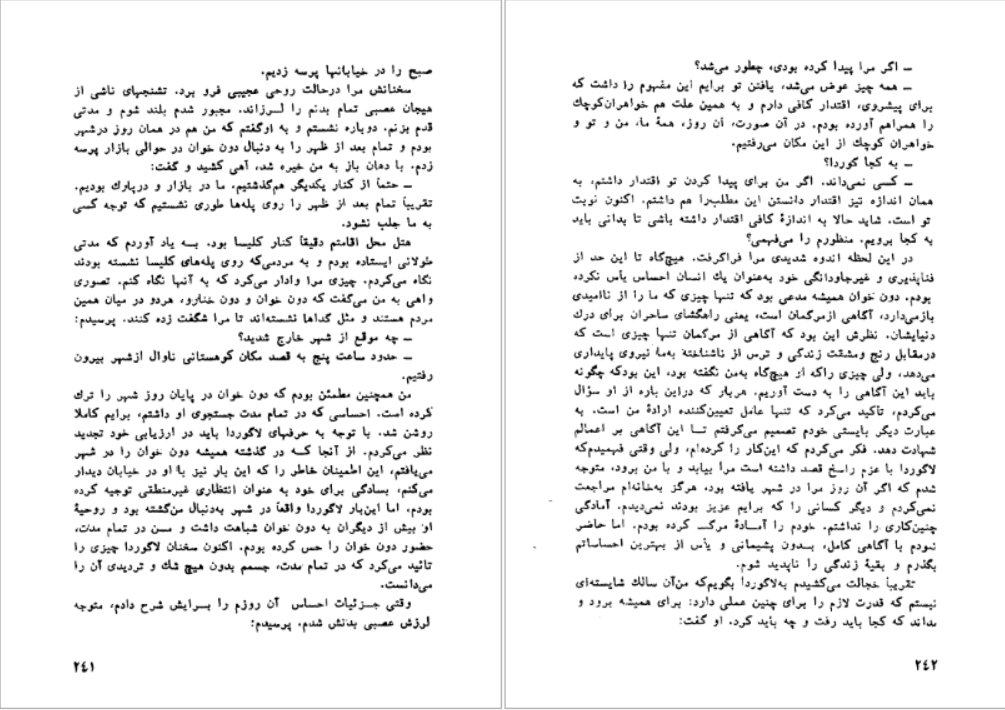 صبح را در خیابانها پرسه زدیم.
سخنانش مرا درحالت روحی عجیبی فرو برد. تشنجهای ناشی از
هیجان عصبی تمام بدنم را لـرزاند. مجبور شدم بلند شوم و مدتی
قدم بزنم. دوباره نشستم و به اوگفتم که من هم در همان روز درشهر
بودم و تمام بعد از ظهر را به دنبال دون خوان در حوالی بازار پرسه
زدم. با دهان باز به من خیره شد، آهی کشید و گفت:
ـ حتماً از کنار یکدیگر هم‌گذشتیم. ما در بازار و درپارك بودیم.
تقریباً تمام بعد از ظهر را روی پله‌ها طوری نشستیم که توجه کسی
به ما جلب نشود.
هتل محل اقامتم دقیقاً کنار کلیسا بود. بـه یاد آوردم که مدتی
طولانی ایستاده بودم و به مردمی‌که روی پله‌های کلیسا نشسته بودند
نگاه می‌کردم. چیزی مرا وادار می‌کرد که به آنها نگاه کنم. تصوری
واهی به من می‌گفت که دون خوان و دون خنارو، هردو در میان همین
مردم هستند و مثل گداها نشسته‌اند تا مرا شگفت زده کنند. پرسیدم:
ـ چه موقع از شهر خارج شدید؟
ـ حدود ساعت پنج به قصد مکان کوهستانی ناوال ازشهر بیرون
رفتیم.
من همچنین مطمئن بودم که دون خوان در پایان روز شهر را ترك
کرده است. احساسی که در تمام مدت جستجوی او داشتم، برایم کاملا
روشن شد. با توجه به حرفهای لاگوردا باید در ارزیابی خود تجدید
نظر می‌کردم. از آنجا کـه در گذشته همیشه دون خوان را در شهر
می‌یافتم، این اطمینان خاطر را که این بار نیز با او در خیابان دیدار
می‌کنم، بسادگی برای خود به عنوان انتظاری غیرمنطقی توجیه کرده
بودم. اما این‌بار لاگوردا واقعاً در شهر به‌دنبال من‌گشته بود و روحیهٔ
او بیش از دیگران به دون خوان شباهت داشت و مـن در تمام مدت،
حضور دون خوان را حس کرده بودم. اکنون سخنان لاگوردا چیزی را
تائید می‌کرد که در تمام مدت، جسمم بدون هیچ شك و تردیدی آن را
می‌دانست.
وقتی جـزئیات احساس آن روزم را بـرایش شرح دادم، متوجه
لرزش عصبی بدنش شدم. پرسیدم:
۲٤۱
ـ اگر مرا پیدا کرده بودی، چطور می‌شد؟
ـ همه چیز عوض می‌شد، یافتن تو برایم این مفهوم را داشت که
برای پیشروی، اقتدار کافی دارم و به همین علت هم خواهران‌کوچك
را همراهم آورده بودم. در آن صورت، آن روز، همهٔ ما، من و تو و
خواهران کوچك از این مکان می‌رفتیم.
ـ به کجا گوردا؟
ـ کسی نمی‌داند. اگر من برای پیدا کردن تو اقتدار داشتم، به
همان اندازه نیز اقتدار دانستن این مطلب‌را هم داشتم. اکنون نوبت
تو است. شاید حالا به اندازهٔ کافی اقتدار داشته باشی تا بدانی باید
به کجا برویم. منظورم را می‌فهمی؟
در این لحظه اندوه شدیدی مرا فراگرفت. هیچ‌گاه تا این حد از
فناپذیری و غیرجاودانگی خود به‌عنوان یك انسان احساس یأس نکرده
بودم. دون خوان همیشه مدعی بود که تنها چیزی که ما را از ناامیدی
بازمی‌دارد، آگاهی ازمرگمان است، یعنی راهگشای ساحران برای درك
دنیایشان. نظرش این بود که آگاهی از مرگمان تنها چیزی است که
درمقابل رنج ومشقت زندگی و ترس از ناشناخته به‌ما نیروی پایداری
می‌دهد، ولی چیزی راکه او هیچ‌گاه به‌من نگفته بود، این بودکه چگونه
باید این آگاهی را به دست آوریم. هربار که دراین باره از او سؤال
می‌کردم، تأکید می‌کرد که تنها عامل تعیین‌کننده ارادهٔ من است. به
عبارت دیگر بایستی خودم تصمیم می‌گرفتم تـا این آگاهی بر اعمالم
شهادت دهد. فکر می‌کردم که این‌کار را کرده‌ام، ولی وقتی فهمیدم‌که
لاگوردا با عزم راسخ قصد داشته است مرا بیابد و با من برود، متوجه
شدم که اگر آن روز مرا در شهر یافته بود، هرگز به‌خانه‌ام مراجعت
نمی‌کردم و دیگر کسانی را که برایم عزیز بودند نمی‌دیدم. آمادگی
چنین‌کاری را نداشتم. خودم را آمـادهٔ مرگـ کرده بودم. اما حاضر
نبودم با آگاهی کامل، بـدون پشیمانی و یأس از بهترین احساساتم
بگذرم و بقیهٔ زندگی را ناپدید شوم.
تقریباً خجالت می‌کشیدم به‌لاگوردا بگویم‌که من‌آن سالك شایسته‌ای
نیستم که قدرت لازم را برای چنین عملی دارد: برای همیشه برود و
بداند که کجا باید رفت و چه باید کرد. او گفت:
۲٤۲